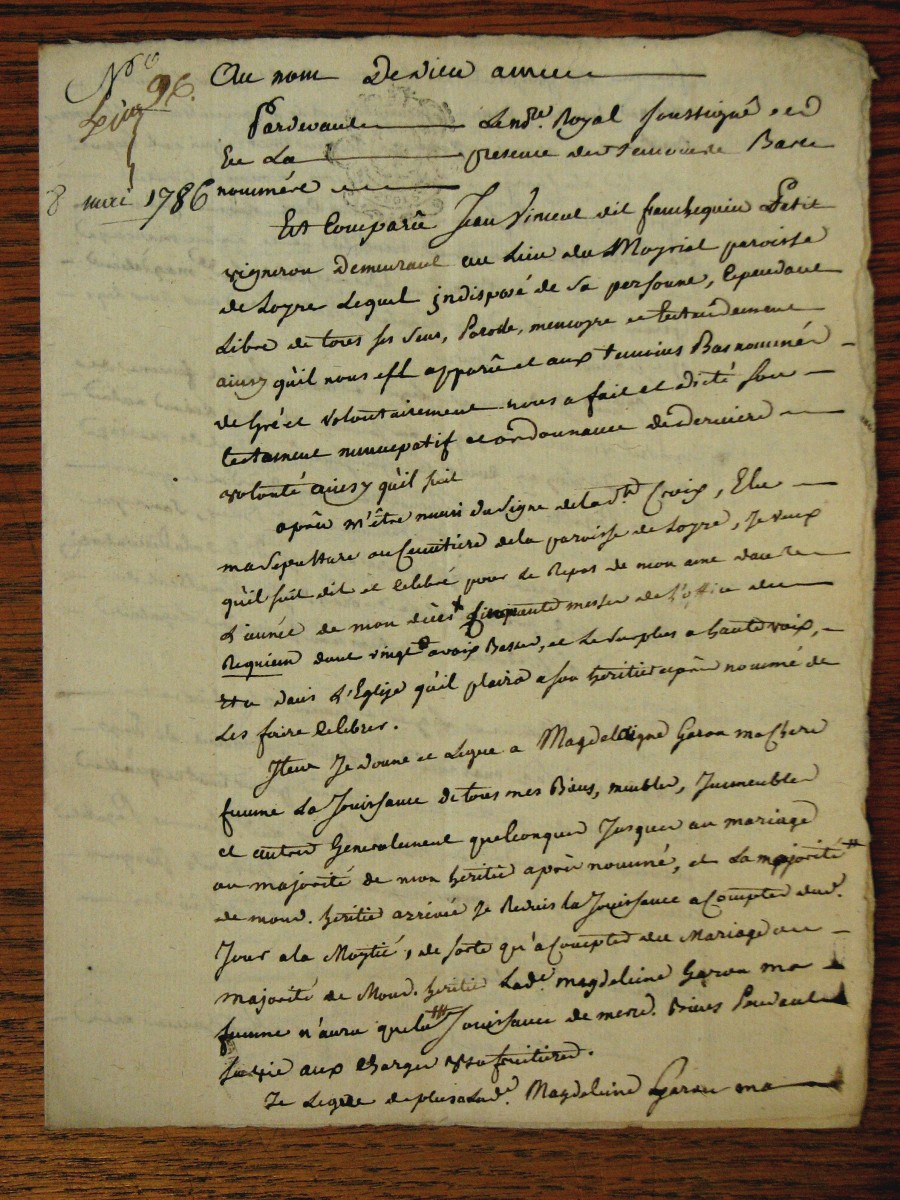 N.o 96.
8 mai 1786
Au nom de Dieu amen
Pardevant Le no.re Royal soussigné, et
En La presence des temoins Bas
nommés
Est Comparû Jean Vincent dit franchequin Petit
vigneron Demeurant au Lieu du Moyrial paroisse
de Loyre Lequel jndisposé de sa personne, Cependant
Libre de tous ses sens, Parole, memoyre et Entendement
ainsy qu'il nous est apparû et aux temoins Bas nommés
de Gré et volontairement nous a fait et dicté son
testament nuncupatif et ordonnance de derniere
volonté ainsy qu'il suit
après m'être muni du signe de la s.te Croix, Elu
ma sepulture au Cemitiere de la paroisse de Loyre, Je veux
qu'il soit dit et celebré pour Le Repos de mon ame dans
L'année de mon décès Cinquante messes de L'office de
Requiem dont vingt a voix Basse, et Le surplus a haute voix,
Et dans L'Eglise qu'il plaira a son heritier après nommé de
Les faire celebrer.
Jtem Je donne et Legue a Magdeleigne Garon ma Chere
femme La Jouissance de tous mes Biens, meubles, Jmmeubles
et autres Generalement quelconques Jusques au mariage
ou majorité de mon heritier après nommé, et La majorité
de mond. heritier arrivée Je Reduis la Jouissance a Compter dud.
Jour a la Moytié, de sorte qu'a Compter du Mariage ou
majorité de Mond. heritier Lad.e magdeleine Garon ma
femme n'aura que la Jouissance de mesd. Biens Pendant
sa vie aux Charges usufruitieres.
Je Legue de plus a Lad.e Magdeleine Garon ma